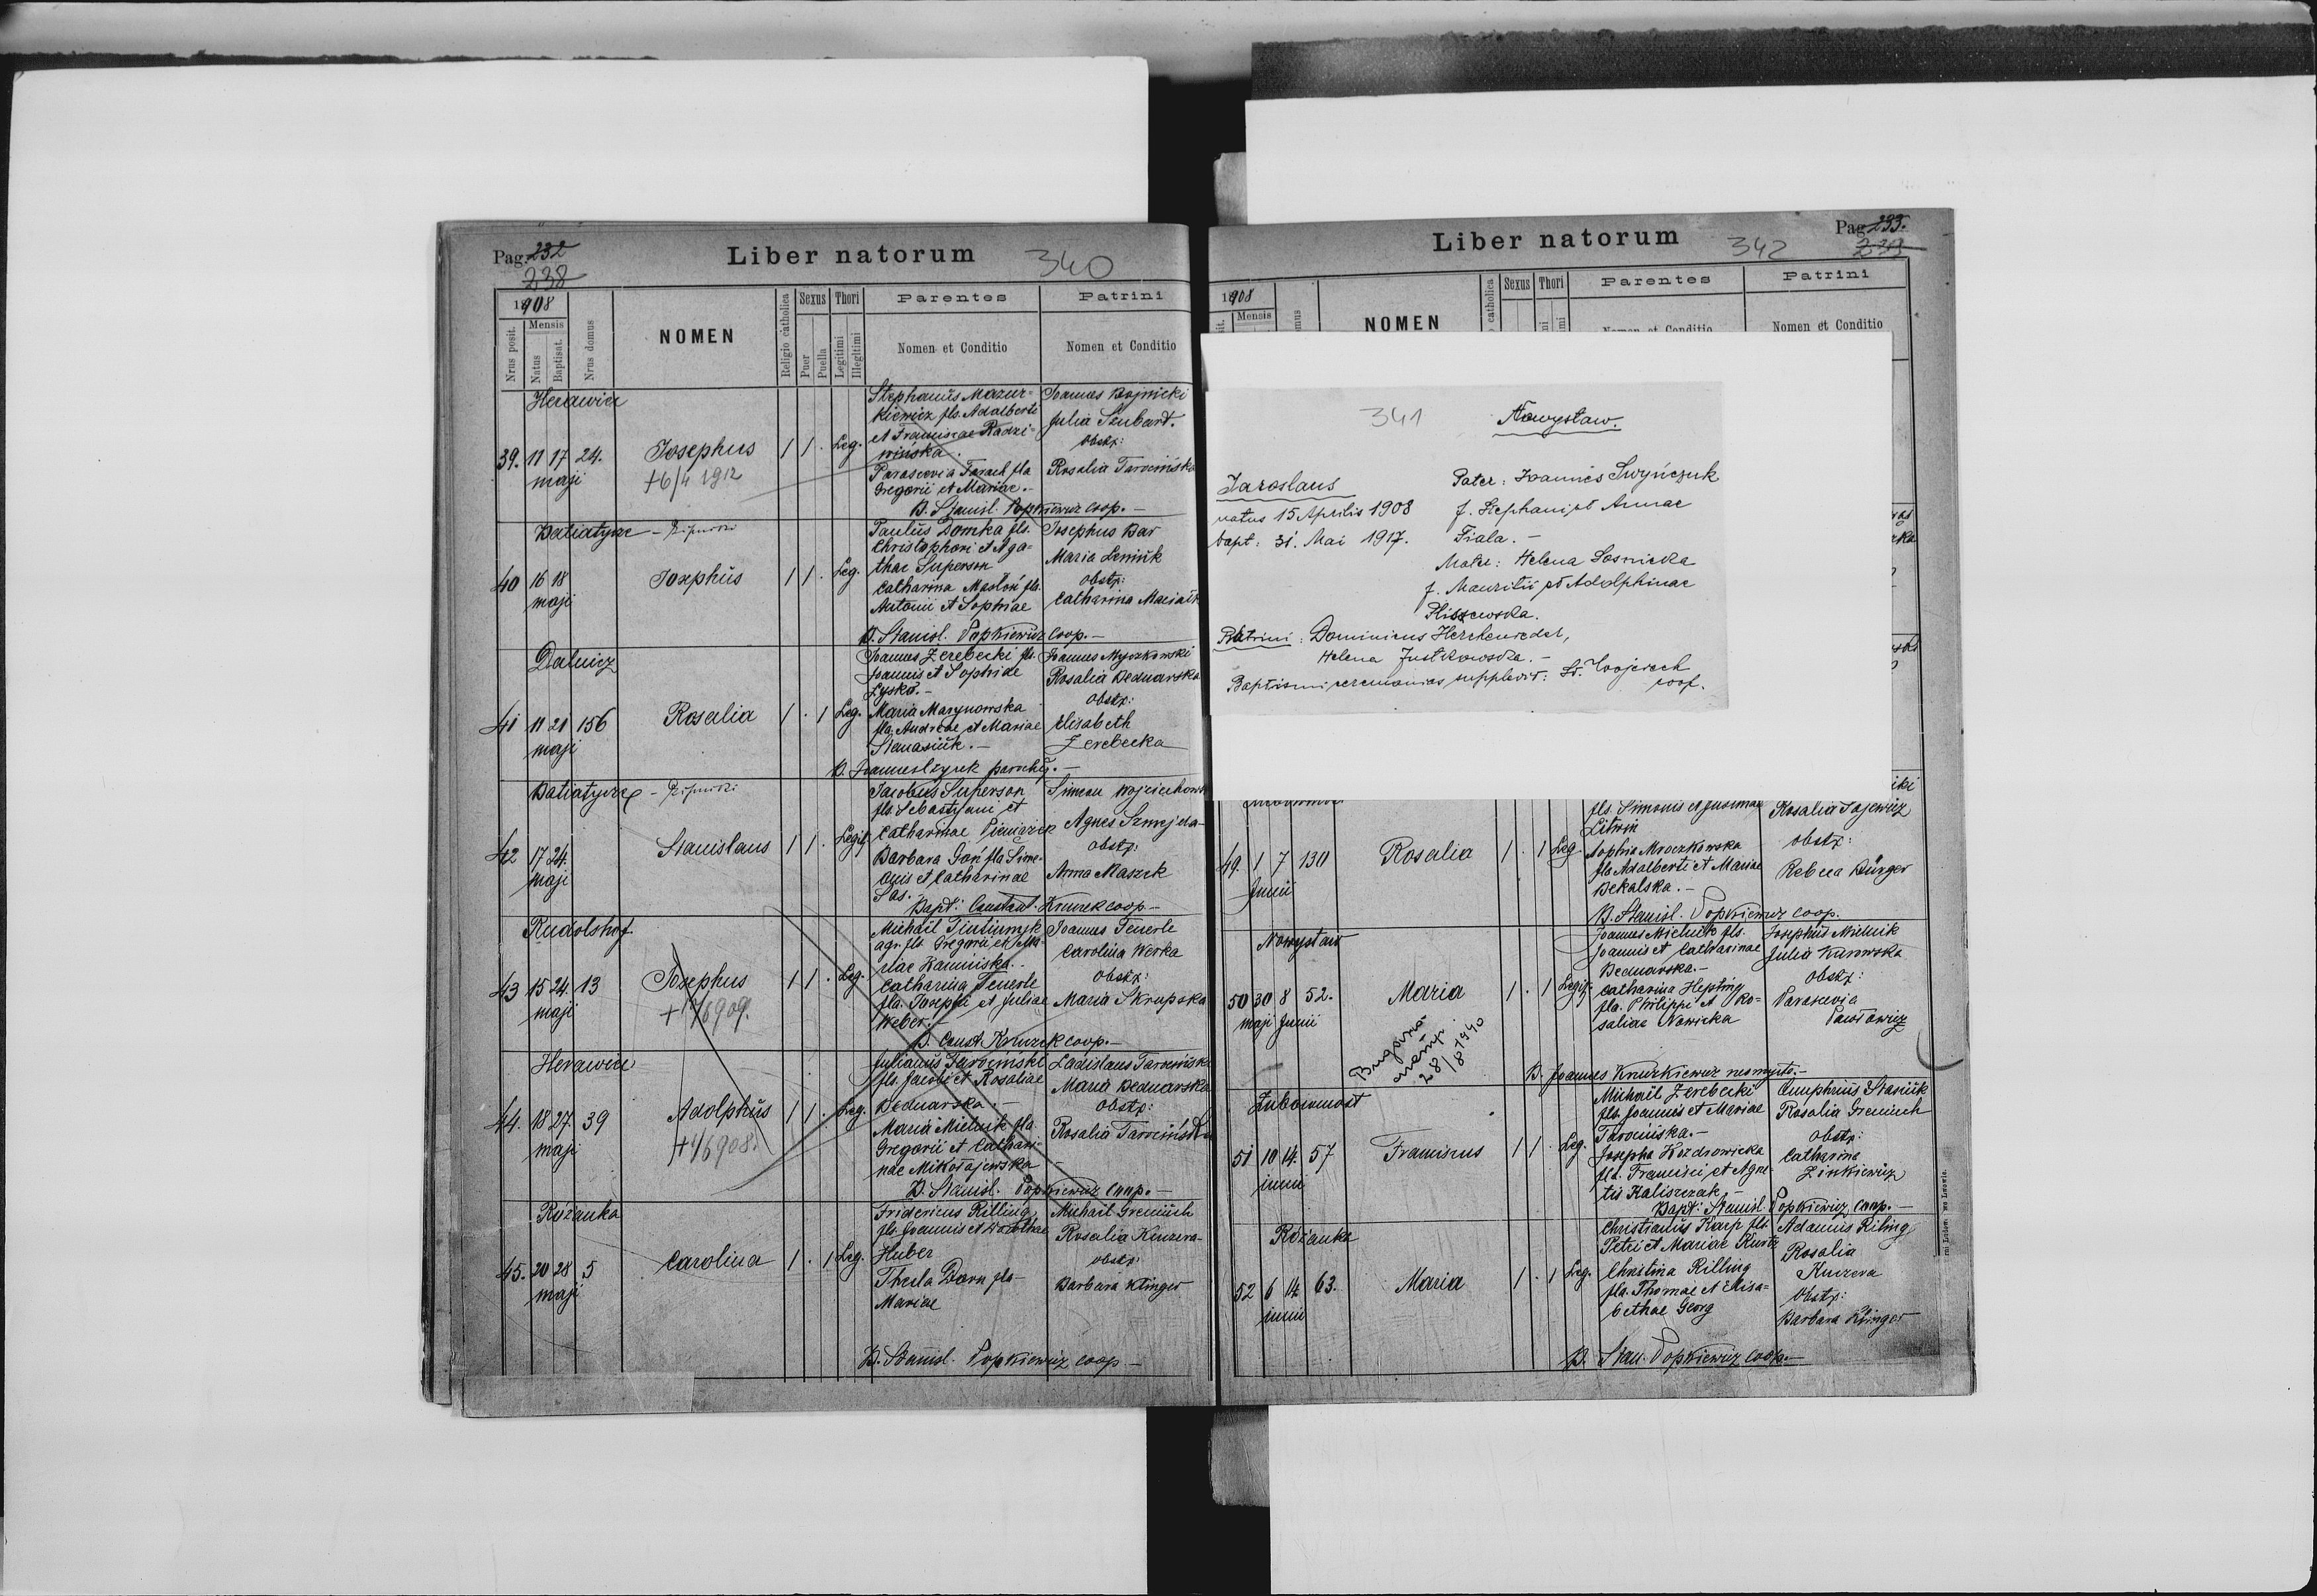 Pag. 232
238
Liber natorum
340
1908
Nrus posit.
Mensis
Natus
Baptisat.
Nrus domus
NOMEN
Religio catholica
Sexus
Puer
Puella
Thori
Legitimi
Illegitimi
Parentes
Nomen et Conditio
Patrini
Nomen et Conditio
39. 11 17 24.
maji
Josephus
+6/4 1912
1 1 . Leg.
Stephanus Mazur=
kiewicz fls. Adalberti
et Franciscae Radzi=
wińska.
Parascevia Tarach fla
Gregorii et Mariae.-
Joannes Bojnicki
Julia Seubart.
Obstp:
Rosalia Tarocińska
B. Stanisl. Popkiewicz coop.-
Batiatycze
40 16 18
maji
Josephus
1 1 . Leg.
Paulus Domka fls.
Christophori et Aga=
thae Superson
Catharina Masłoń fla.
Antonii et Sophiae
Josephus Bar
Maria Leniuk
obstp:
Catharina Maciaik
B. Stanisl. Popkiewicz coop.-
Dalnicz
41 11 21 156
maji
Rosalia
1 . 1 Leg.
Joannes Zerebecki fls.
Joannis et Sophiae
Łysko.-
Maria Marynowska
fla. Andreae et Mariae
Stanasiuk.-
Joannes Myszkowski
Rosalia Bednarska
Obstp:
Elisabeth
Zerebecka
Batiatycze
42 17 24
maji
Stanislaus
1 1 . Legit.
Jacobus Superson
fls. Sebastyani et
Catharinae Pieniążek
Barbara Goń fla Sime-
onis et Catharinae
Sas.
Simeon Wojciechows
Agnes
obstp:
Anna Maszek
Bapt: Constant. Kmurek coop-
Rudolshof
43 15 24 13
maji
Josephus
1 1 . Leg.
Michaël
agr. fls Gregorii et Ma-
riae Kaminska.-
Catharina Feuerle
fla. Josephi et Juliae
Weber.-
Joannes Feuerle
Carolina Werka
Obstp:
Maria Skrupska
B. Const. Kmurek coop.-
Herawiec
44. 18 27. 39
maji
Adolphus
+ 1/6 908.
1 1 . Leg.
Julianus Tarociński
fls. Jacobi et Rosaliae
Bednarska.-
Maria Mielnik fla.
Gregorii et Cathari-
nae Mikołajewska
Ladislaus Tarociński
Maria Bednarska
Obstp:
Rosalia Tarocińska
B. Stanisl. Popkiewicz coop.-
Różanka
45. 20 28 5
maji
Carolina
1 . 1 Leg.
Fridericus Rilling
fls. Joannis et Dorothae
Huber
Thecla Dorn fla
Mariae
Michaël Greniuch
Rosalia Kuzera-
obstp:
Barbara Klinger
B. Stanisl. Popkiewicz coop-
Pag. 233.
239
Liber natorum
342
1908
Mensis
NOMEN
catholica
Sexus
Thori
Parentes
Patrini
Nomen et Conditio
341
Nowystaw.
Jaroslaus
natus 15 Aprilis 1908
bapt: 31. Mai 1917.
Pater: Joannes Swyńczuk
f. Stephani et Annae
Fiala.-
Mater: Helena Sosnicka
f. Mauritii et Adolphinae
Kliszewska.
Patrini: Dominicus Herchenreder,
Helena Justkowska.-
Baptismi ceremonias supplevit: St. Wojciech
coop.
49. 1 7 130
Junii
Rosalia
1 . 1 Leg.
fls Simonis et Justinae
Litwin
Sophia Mroczkowska
fla Adalberti et Mariae
Bekalska.-
Rosalia Sajewicz
obstp:
Rebeca Bürger
B. Stanisl. Popkiewicz coop.
Nowystaw
50 30 8 52.
maji Junii
Maria
28/8 1940
1 . 1 Legit.
Joannes Mielnik fls.
Joannis et Catharinae
Bednarska.-
Catharina Hepting
fla. Philippi et Ro=
saliae Nowicka
Josephus Mielnik
Julia Kurowska
obstp:
Parascevia
Pawłowicz
B. Joannes Knurkiewicz neomysta.-
51 10 14. 57
junii
Franciscus
1 1 . Leg.
Michaël Zerebecki
fls. Joannis et Mariae
Tarocińska.-
Josepha Kozdrowicka
fla. Francisci et Agne-
tis Kaliszczak.-
Onuphrius Stasiuk
Rosalia Greniuch
Obstp:
Catharina
Zinkiewicz
Bapt: Stanisl. Popkiewicz coop.-
Różanka
52 6 14 63.
junii
Maria
1 . 1 Leg.
Christianus Karp fls.
Petri et Mariae Kurtz
Christina Rilling
fla. Thomae et Elisa=
bethae Georg
Adamus Riling
Rosalia
Kuzera
Obstp:
Barbara Klinger
B. Stan. Popkiewicz coop.-